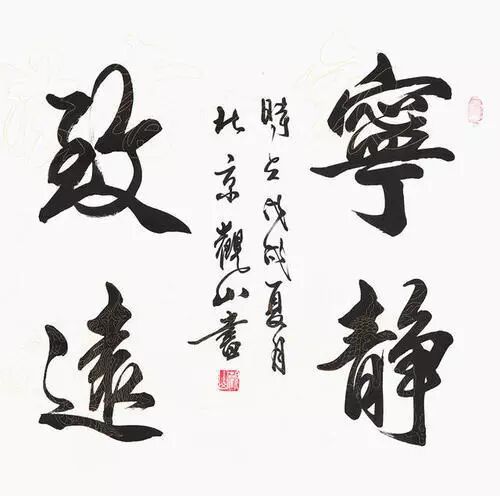 寧靜
致遠
時在戊戌夏月
北京觀山書